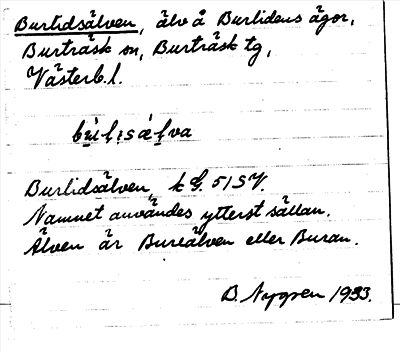 Burlidsälven, älv å Burlidens ägor,
Burträsk sn, Burträsk tg,
Västerb.l.
Burlidsälven, k 51 SV.
Namnet användes ytterst sällan.
Älven är Bureälven eller Buran.
B. Nygren 1933.